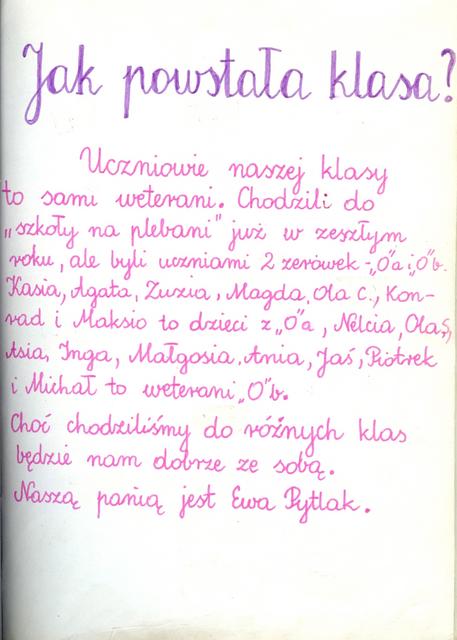 Jak powstała klasa?
Uczniowie naszej klasy
to sami weterani. Chodzili do
„szkoły na plebani" już w zeszłym
roku, ale byli uczniami 2 zerówek -„O"a i „O"b.
Kasia, Agata, Zuzia, Magda, Ola C., Kon-
rad i Maksio to dzieci z „O"a, Nelcia, Ola S,
Asia, Inga, Małgosia, Ania, Jaś, Piotrek
i Michał to weterani „O"b.
Choć chodziliśmy do różnych klas
będzie nam dobrze ze sobą.
Naszą panią jest Ewa Pytlak.